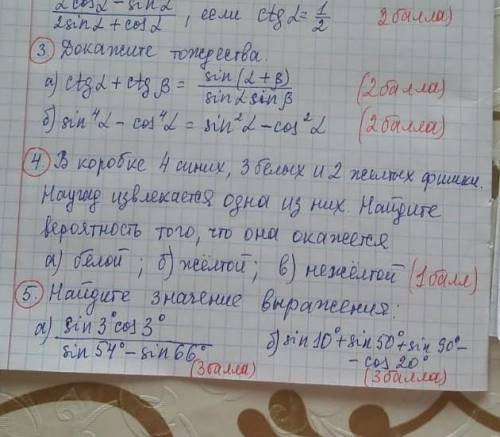 2cosα - sinα / 2sinα + cosα, если ctgα = 1/2 2 балла)
3. Докажите тождества.
а) ctgα + ctgβ = sin(α+β) / sinα sinβ (2 балла)
б) sin⁴α - cos⁴α = sin²α - cos²α (2 балла)
4. В коробке 4 синих, 3 белых и 2 желтых фишки.
Наугад извлекается одна из них. Найдите
вероятность того, что она окажется
а) белой; б) жёлтой; в) нежёлтой (1 балл)
5. Найдите значение выражения:
а) sin3°cos3° / sin54° - sin66° (3 балла)
б) sin10° + sin50° + sin90° -
- cos20° (3 балла)